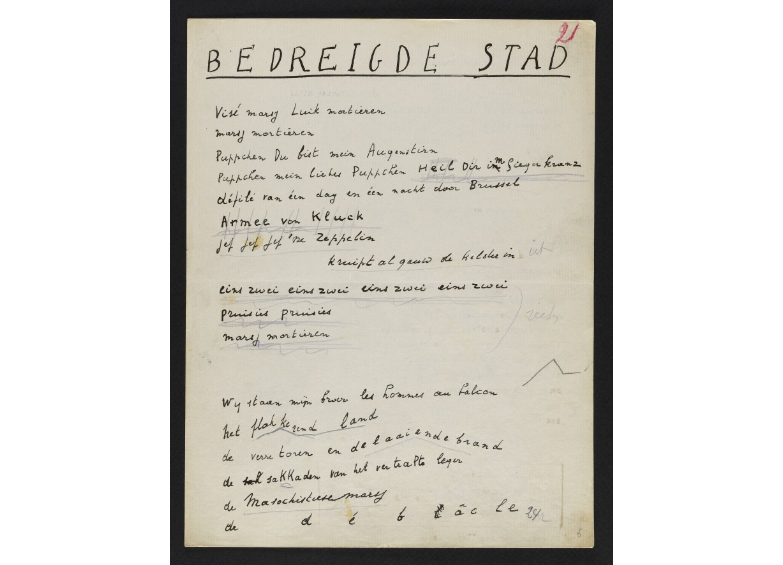 21
BEDREIGDE STAD
Visé marsj Luik mortieren
marsj mortieren
Puppchen Du bist mein Augenstirn
Puppchen mein liebes Puppchen Heil Dir im Siegerkranz
défilé van één dag en één nacht door Brussel
Armee von Kluck
Jef Jef Jef 'ne Zeppelin
kruipt al gauw de kelder in
eins zwei eins zwei eins zwei eins zwei
pruisies pruisies
marsj mortieren
Wij staan mijn broer les hommes au balcon
het flakkerend land
de verre toren en de laaiende brand
de sakkaden van het vertrapte leger
de Masochistiese marsj
de d é b â c l e